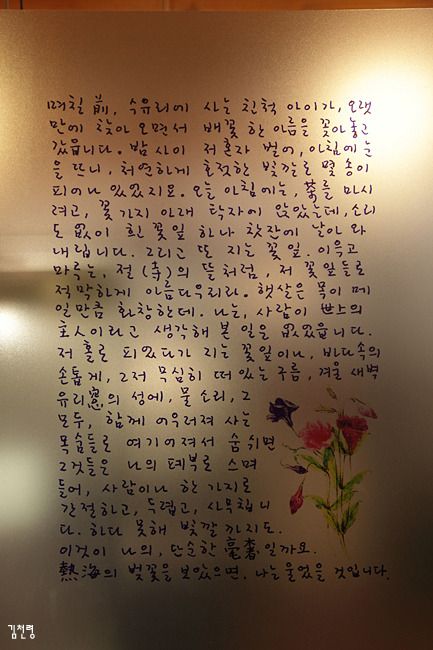 며칠 前, 수유리에 사는 친척 아이가, 오랫
만에 찾아 오면서 배꽃 한 아름을 꽂아놓고
갔읍니다. 밤 사이 저 혼자 벌어, 아침에 눈
을 뜨니, 처연하게 호젓한 빛깔로 몇 송이
피어나 있었지요. 오늘 아침에는, 茶를 마시
려고, 꽃 가지 아래 탁자에 앉았는데, 소리
도 없이 흰 꽃잎 하나 찻잔에 날아 와
내립니다. 그리고 또 지는 꽃잎. 이윽고
마르는, 절 (寺)의 뜰처럼, 저 꽃잎들로
적막하게 아름다우리라. 햇살은 목이 메
일만큼 화창한데. 나는, 사람이 世上의
호人이라고 생각해 본 일은 없었읍니다.
저 홀로 피었다가 지는 꽃잎이나, 바다속의
손톱게, 그저 무심히 떠 있는 구름, 겨울 새벽
유리窓의 성에, 물 소리, 그
모두, 함께 어우러져 사는
목숨들로 여기어져서 숨쉬면
그것들은 나의 폐부로 스며
들어, 사람이나 한 가지로
간절하고, 두렵고, 사무칩니
다. 하다 못해 빛깔까지도.
이것이 나의, 단순한 일까요.
熱海의 벚꽃을 보았으면. 나는 울었을 것입니다.
김천령